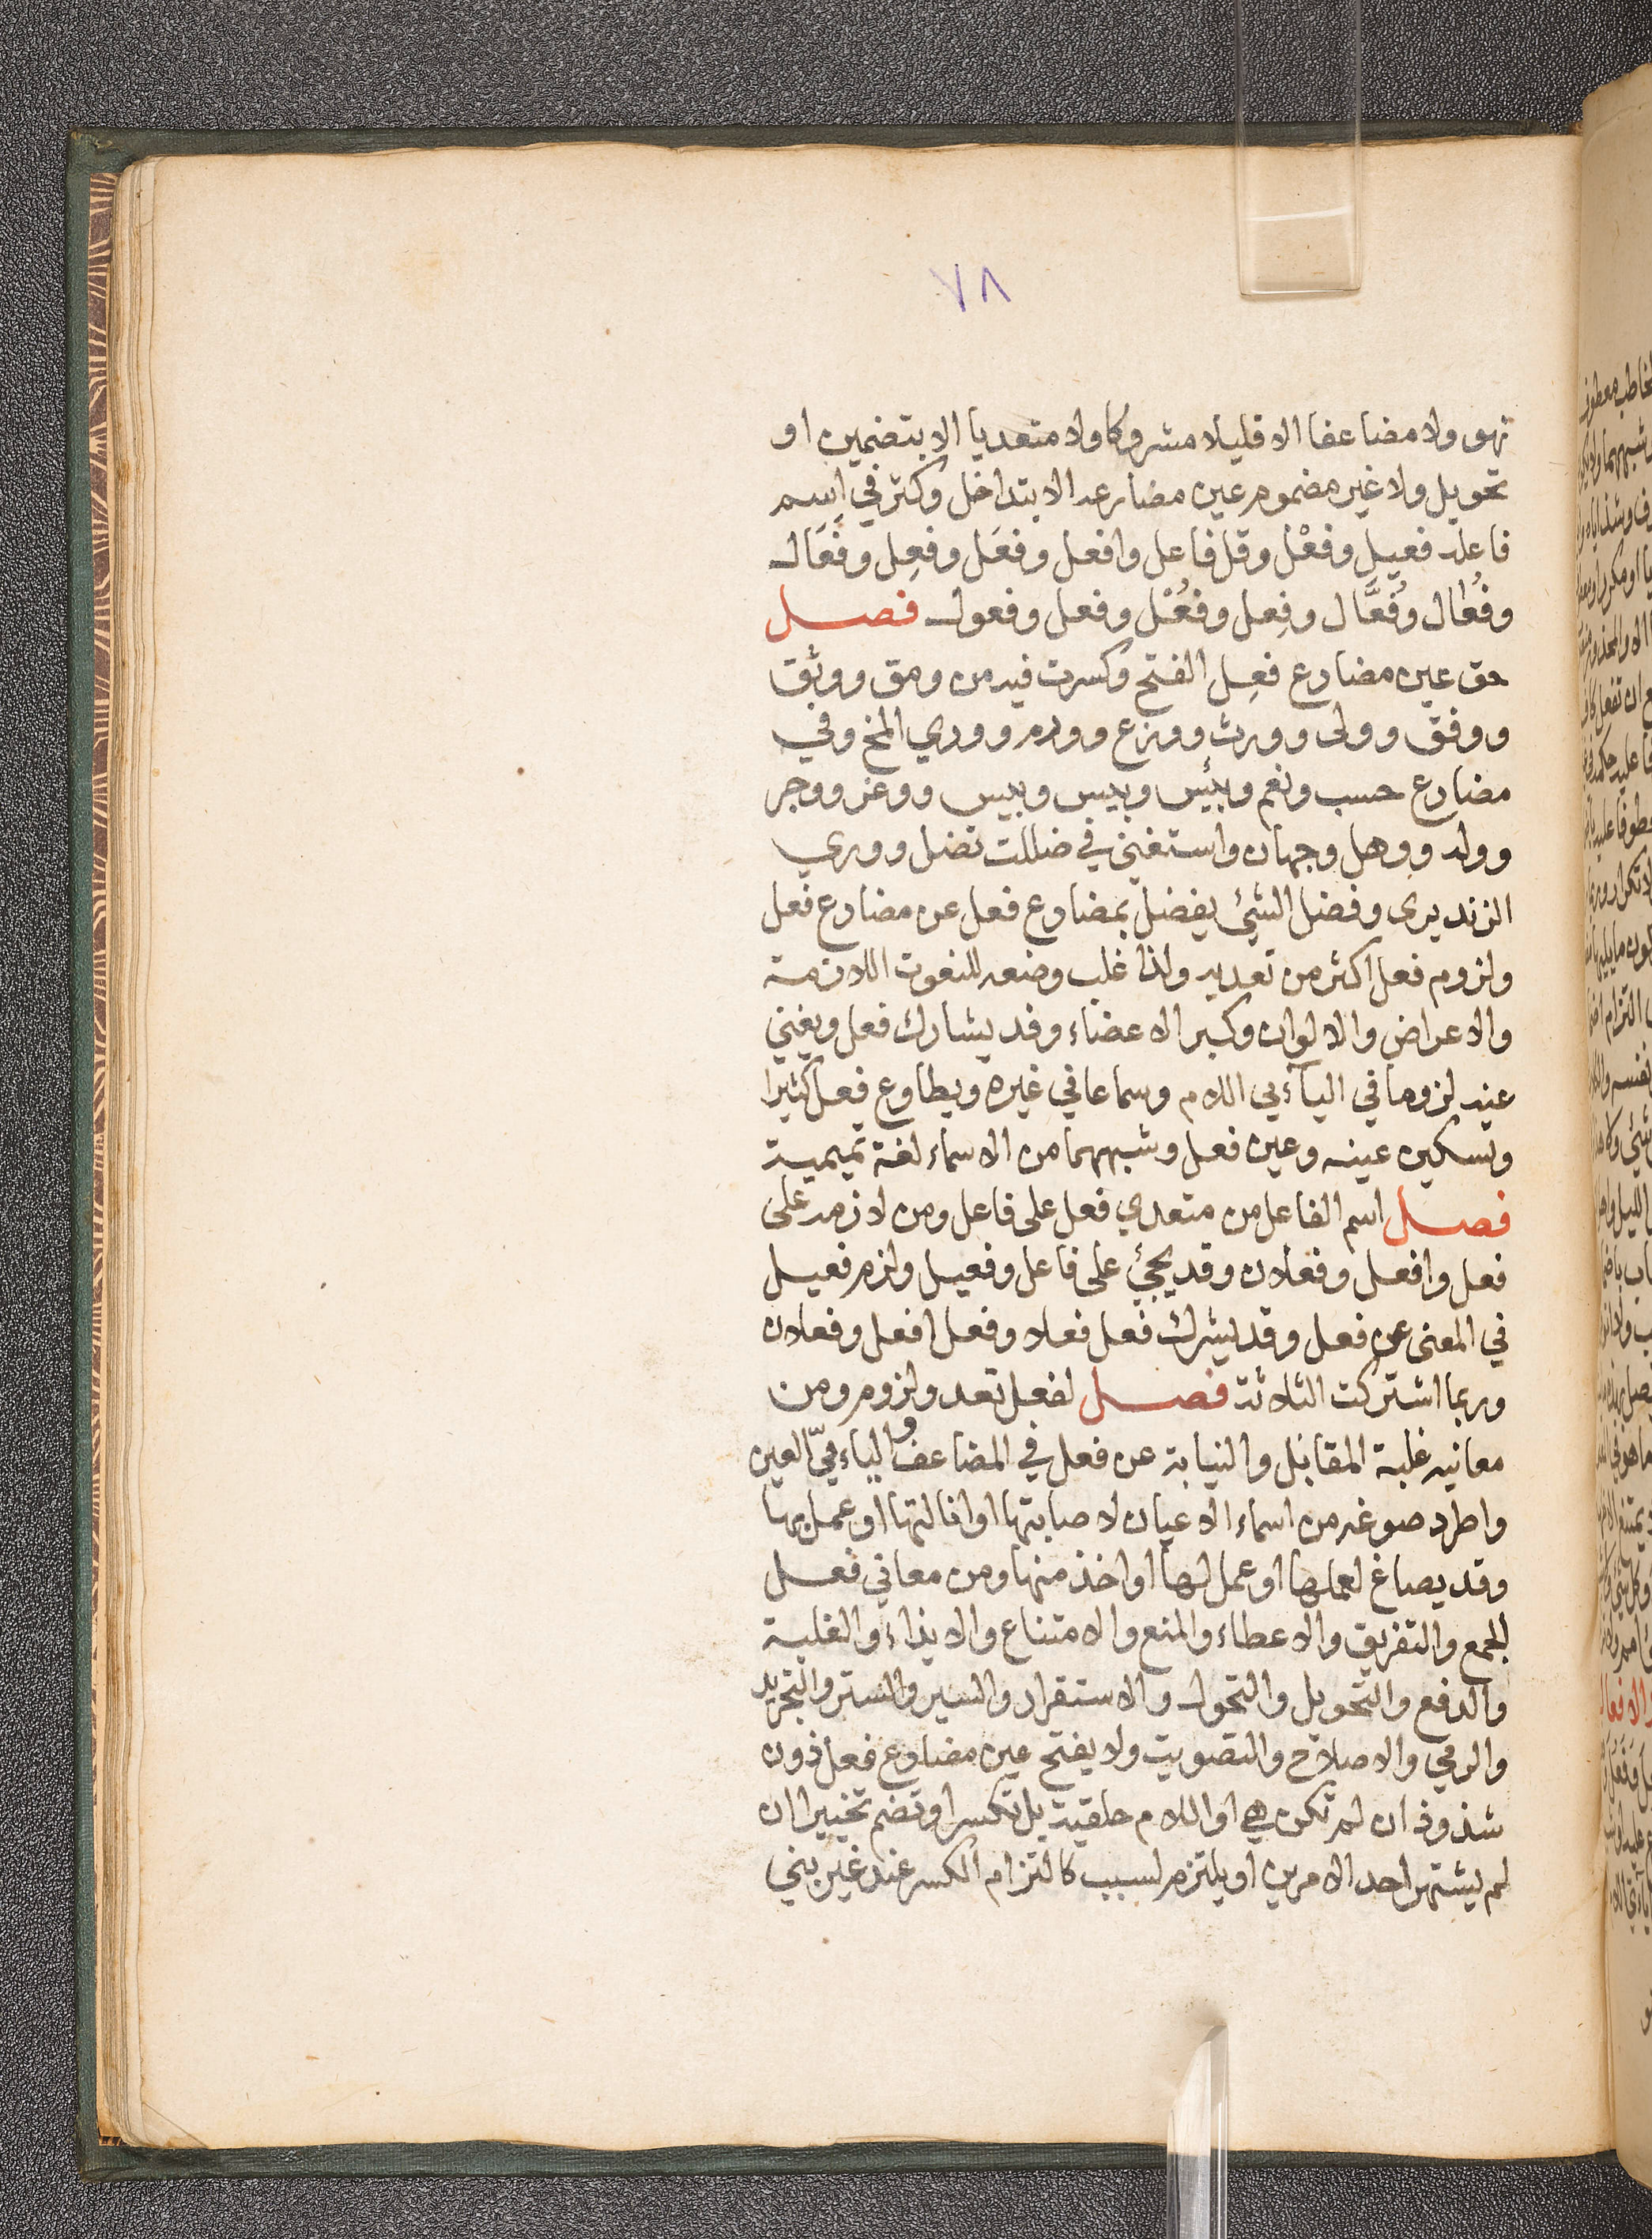 ٧٨
نهو ولا مضاعفا الا قليلا مشروكا ولا متعديا الا بتضمين او
تحويل ولا غير مضموم عين مضارعه الا بتداخل وكثر في اسم
فاعله فعيل وفعْل وقل فاعل وافعل وفعَل وفعِل وفَعَال
وفُعَال وفُعَّال وفِعل وفُعُل وفعل وفعول فصل
حق عين مضارع فعِل الفتح وكسرت فيه من ومق ووثق
ووفق وولى وورث وورع وورم ووري المخ وفي
مضارع حسب ونعم وبئس وييس وييس ووغر ووحر
ووله ووهل وجهان واستغني في ضللت تضل ووري
الزند يرى وفضل الشئ يفضل بمضارع فعل عن مضارع فعل
ولزوم فعل اكثر من تعديه ولذا غلب وضعه للنعوت اللازمة
والاعراض والالوان وكبر الاعضاء وقد يشارك فعل ويغني
عنه لزوما في اليآءي اللام وسماعا في غيره ويطاوع فعل كثيرا
وتسكين عينه وعين فعل وشبههما من الاسماء لغة تميمية
فصل اسم الفاعل من متعدي فعل على فاعل ومن لازمه على
فعل وافعل وفعلان وقد يجئ على فاعل وفعيل ولزم فعيل
في المغنى عن فعل وقد يشرك فعل فعلا وفعل افعل وفعلان
وربما اشتركت الثلاثة فصل لفعل تعد ولزوم ومن
معانيه غلبة المقابل والنيابة عن فعل في المضاعف والياءيّ العين
واطرد صوغه من اسماء الاعيان لاصابتها او انالتها او عمل بها
وقد يصاغ لعملها او عمل لها او اخذ منها ومن معاني فعل
الجمع والتفريق والاعطاء والمنع والامتناع والايذاء والغلبة
والدفع والتحويل والتحول والاستقرار والسير والستر والتجريد
والرمي والاصلاح والتصويت ولا يفتح عين مضارع فعل دون
شذوذ ان لم تكن هي او اللام حلقية بل تكسر او تضم تخييرا ان
لم يشتهر احد الامرين او يلتزم لسبب كالتزام الكسر عند غير بني